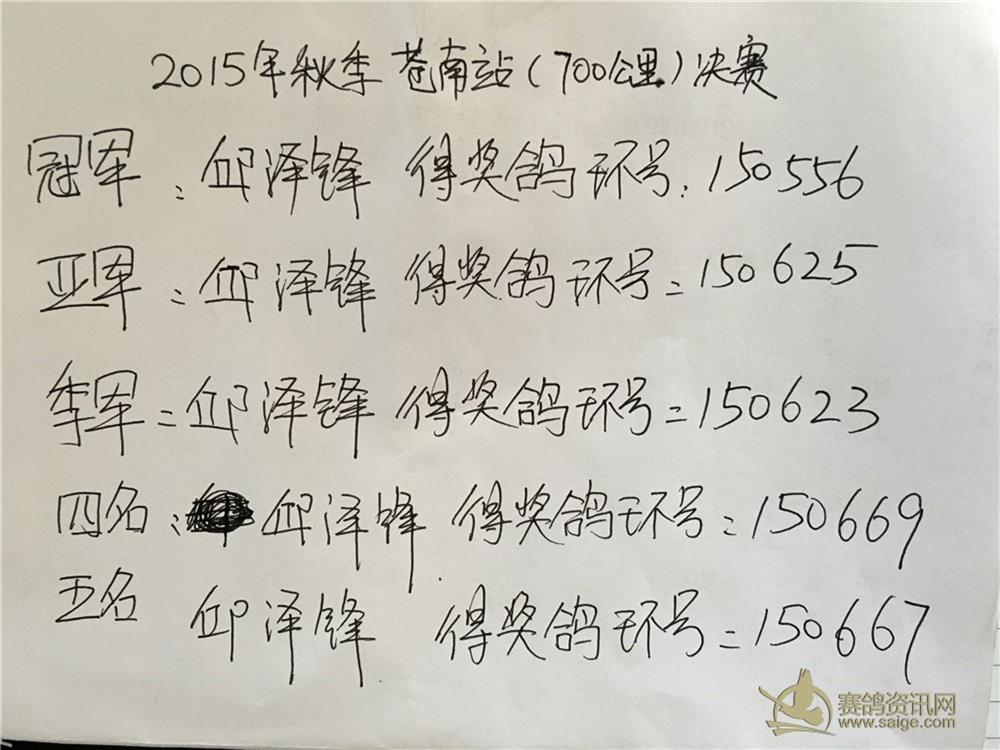 2015年秋季 苍南站(700公里)决赛
冠军：邱泽锋 得奖鸽环号：150556
亚军：邱泽锋 得奖鸽环号：150625
季军：邱泽锋 得奖鸽环号：150623
四名：邱泽锋 得奖鸽环号：150669
五名 邱泽锋 得奖鸽环号：150667
赛鸽资讯网
www.saige.com